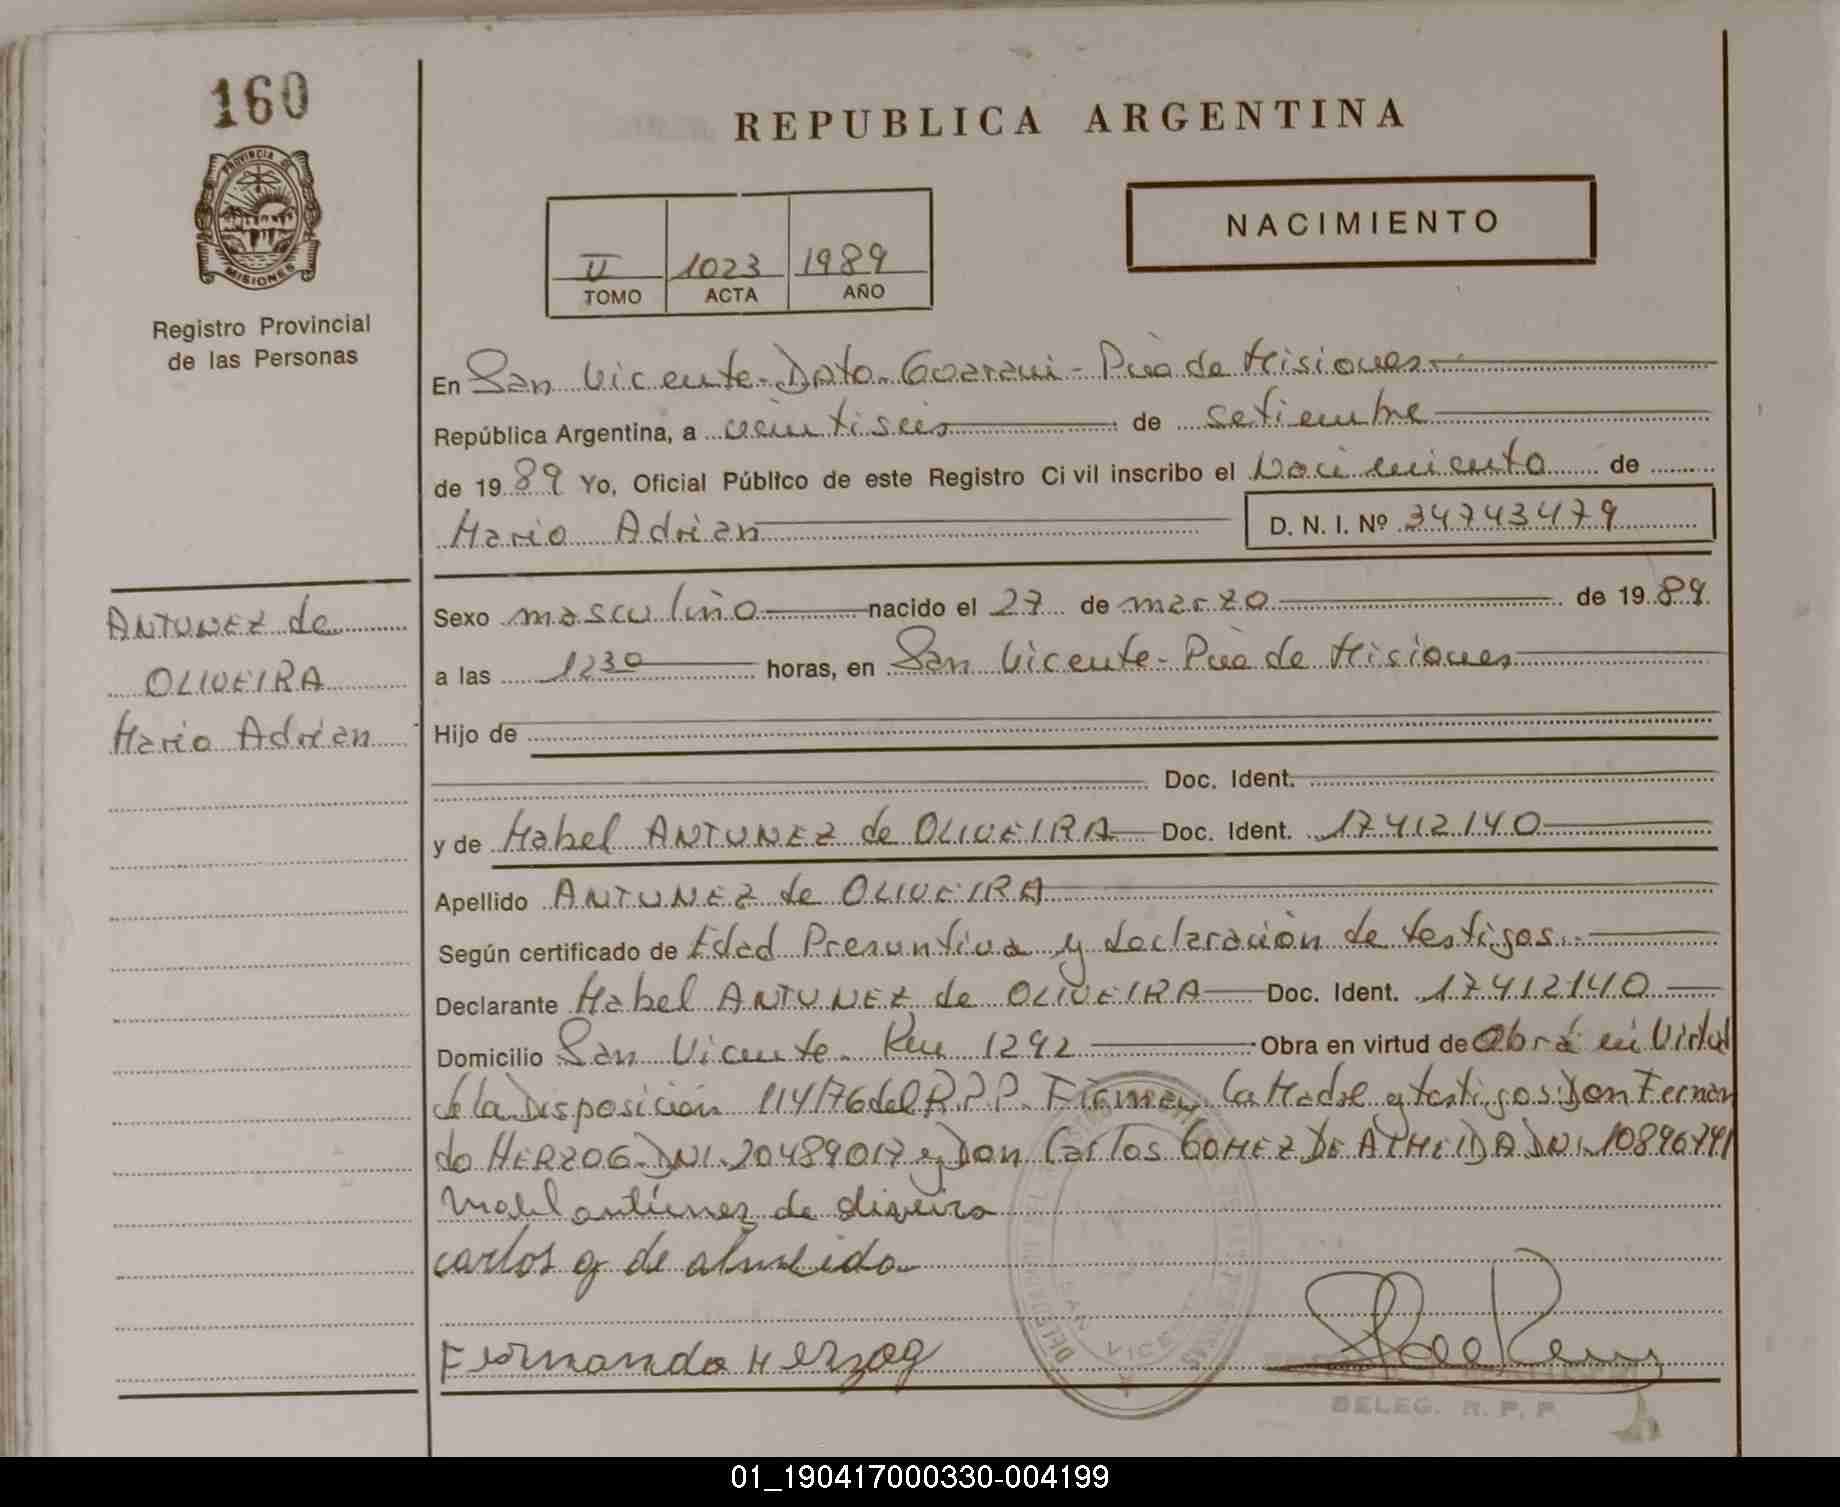 160
PROVINCIA DE
MISIONES
Registro Provincial
de las Personas
REPUBLICA ARGENTINA
II 1023 1989
TOMO ACTA AÑO
NACIMIENTO
En San Vicente - Dpto. Guarani - Pcia de Misiones
República Argentina, a veintiseis de setiembre
de 1989 Yo, Oficial Público de este Registro Civil inscribo el Nacimiento de
Mario Adrian D. N. I. Nº 34743479
ANTUNEZ de
OLIVEIRA
Mario Adrian
Sexo masculino nacido el 27 de marzo de 1989
a las 1230 horas, en San Vicente - Pcia de Misiones
Hijo de
Doc. Ident.
y de Mabel ANTUNEZ de OLIVEIRA Doc. Ident. 17412140
Apellido ANTUNEZ de OLIVEIRA
Según certificado de Edad Presuntiva y declaración de testigos.
Declarante Mabel ANTUNEZ de OLIVEIRA Doc. Ident. 17412140
Domicilio San Vicente. Km 1292 Obra en virtud de Obra en Virtud
de la Disposición 114/76 del R.P.P. Firman la Madre y testigos: Don Fernan
do HERZOG. DNI. 20489017 y Don Carlos GOMEZ DE ALMEIDA DNI. 10896791
Mabel antúnez de oliveira
carlos g de almeida
Fernando Herzog
SAN VICENTE
DELEG. R. P. P.
01_190417000330-004199